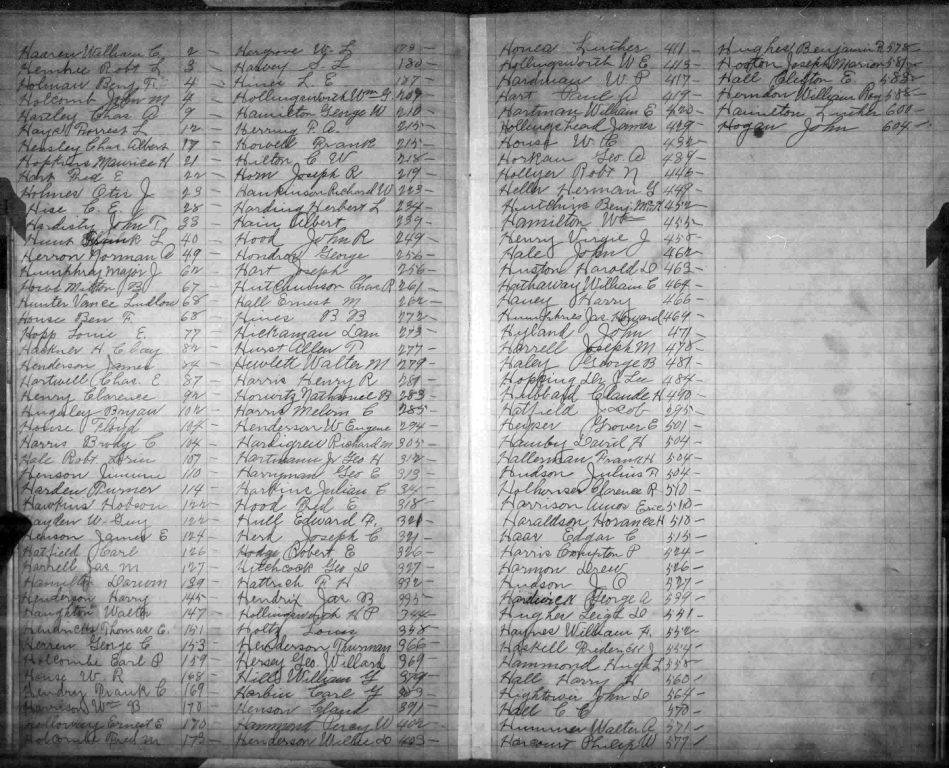 Haaren William C. 2 —
Kembree Robt L 3 —
Holman Benj. F. 4 —
Holcomb John M 4 —
Hartley Chas A 9 —
Hayes Forrest L 12 —
Hensley Chas. Albert 17 —
Hopkins Maurice H 21 —
Hart Fred E 22 —
Holmes Oter J 23 —
Hise C. E. 28 —
Hardisty John T 33 —
Hunt Frank L 40 —
Herron Norman C 49 —
Humphry Major J 62 —
Howe Milton B 67 —
Hunter Vance Ludlow 68 —
House Ben F. 68 —
Hopp Louie E. 77 —
Hackner H C Coy 82 —
Henderson James 84 —
Hartwell Chas. E 87 —
Henry Clarence 92 —
Hugaley Bryan 102 —
House Floyd 104 —
Harris Brody C 104 —
Hale Robt Loren 107 —
Henson Jimmie 110 —
Harden Turner 114 —
Hawkins Hobson 122 —
Hayden W. Guy 122 —
Henson James E 124 —
Hatfield Earl 126 —
Harrell Jas. M 127 —
Hamilton Darwin 139 —
Henderson Harry 145 —
Haughton Walter 147 —
Hendricks Thomas E. 151 —
Herren George C 153 —
Holcombe Earl P 159 —
House W. R 168 —
Hendry Frank C 169 —
Harrison Wm B 170 —
Holloway Ernest E 170 —
Holcombe Fred M 173 —
Hargrove W. L 173 —
Harvey S. L 180 —
Hines L E 187 —
Hollingsworth Wm G. 209
Hamilton George W 210 —
Herring F. A. 215 —
Howell Frank 215 —
Hulton C W 218 —
Horn Joseph R 219 —
Hankinson Richard W 223 —
Harding Herbert L 234 —
Hain Albert 239 —
Hood John R 249 —
Hondros George 256 —
Hart Joseph 256 —
Hutchinson Chas R 261 —
Hall Ernest M 262 —
Hines B B 272 —
Hickaman Dan 273 —
Hurst Allen T 277 —
Hewlett Walter M 279 —
Harris Henry R 281 —
Horwitz Nathaniel B 283 —
Harris Melvin C 285 —
Henderson W Eugene 294 —
Hardigree Richard M 305 —
Hartmann Jr Geo H 312 —
Harryman Geo E 313 —
Harkins Julian C 314 —
Hood Fred E 318 —
Hull Edward F. 321 —
Herd Joseph C 321 —
Hodge Robert E 326 —
Hitchcock Geo D 327 —
Hattrich F H 332 —
Hendrix Jas B 335 —
Hollingsworth H P 344 —
Holtz Louis 358 —
Henderson Thurman 366 —
Hersey Geo. Willard 369 —
Hill William G 379 —
Harbin Carl G 383 —
Henson Claud 391 —
Hammond Percy W 402 —
Henderson Willie D 403 —
Honea Luther 411 —
Hollingsworth W E 413 —
Hardman W P 417 —
Hart Paul A 419 —
Hartman William E 420 —
Hollingshead James 429 —
Houst W C 432 —
Horkan Geo A 439 —
Hollyer Robt N 446 —
Heller Herman G 449 —
Hutchins Benj. McK 452 —
Hamilton Wm 455 —
Henry Virgie J 458 —
Hale John C 462 —
Huston Harold D 463 —
Hathaway William E 464 —
Haney Harry 466 —
Humphries Jas Howard 469 —
Hyland John 471 —
Harrell Joseph M 478 —
Haley George B 481 —
Hopping Dee J Lee 484 —
Hubbard Claude H 490 —
Hatfield Jacob 495 —
Helper Grover E 501 —
Hamby David H 504 —
Hallerman Frank H 504 —
Hudson Julius F 504 —
Holhenser Clarence R 510 —
Harrison Amos Eric 510 —
Haraldson Horance H 510 —
Haas Edgar C 515 —
Harris Compton P 524 —
Harmon Drew 526 —
Hudson J. O 527 —
Hardwick George A 539 —
Hughes Leigh D 551 —
Haynes William F. 552 —
Haskell Frederick J 554 —
Hammond Hugh L 558 —
Hall Harry H 560 —
Hightower John D 564 —
Hall C C 570 —
Hummer Walter A 571 —
Harcourt Philip W 577 —
Hughes Benjamin R 578 —
Hooton Joseph Marion 581 —
Hall Clifton E 583 —
Herndon William Roy 588 —
Hamilton Luther 600 —
Hogan John 604 —